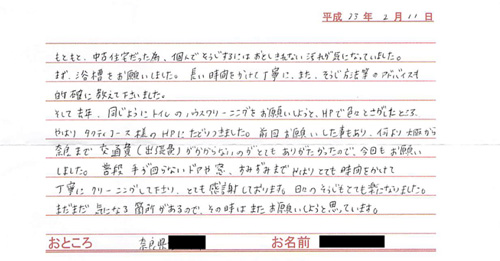 平成 23 年 2 月 11 日
もともと、中古住宅だった為、個人でそうじするにはおとしきれない汚れが気になっていました。
まず、浴槽をお願いしました。長い時間をかけて丁寧に、また、そうじ方法等のアドバイスも
的確に教えて下さいました。
そして去年、同じようにトイレのハウスクリーニングをお願いしようと、HPで色々とさがしたところ、
やはり タクティコース様のHPにたどりつきました。前回お願いした事もあり、何より大阪から
奈良まで 交通費(出張費)がかからないのがとてもありがたかったので、今回もお願い
しました。普段 手が回らないドアや窓、すみずみまでやはりとても時間をかけて
丁寧に クリーニングして下さり、とても感謝しております。日々のそうじもとても楽になりました。
まだまだ 気になる箇所があるので、その時はまたお願いしようと思っています。
おところ 奈良県 お名前